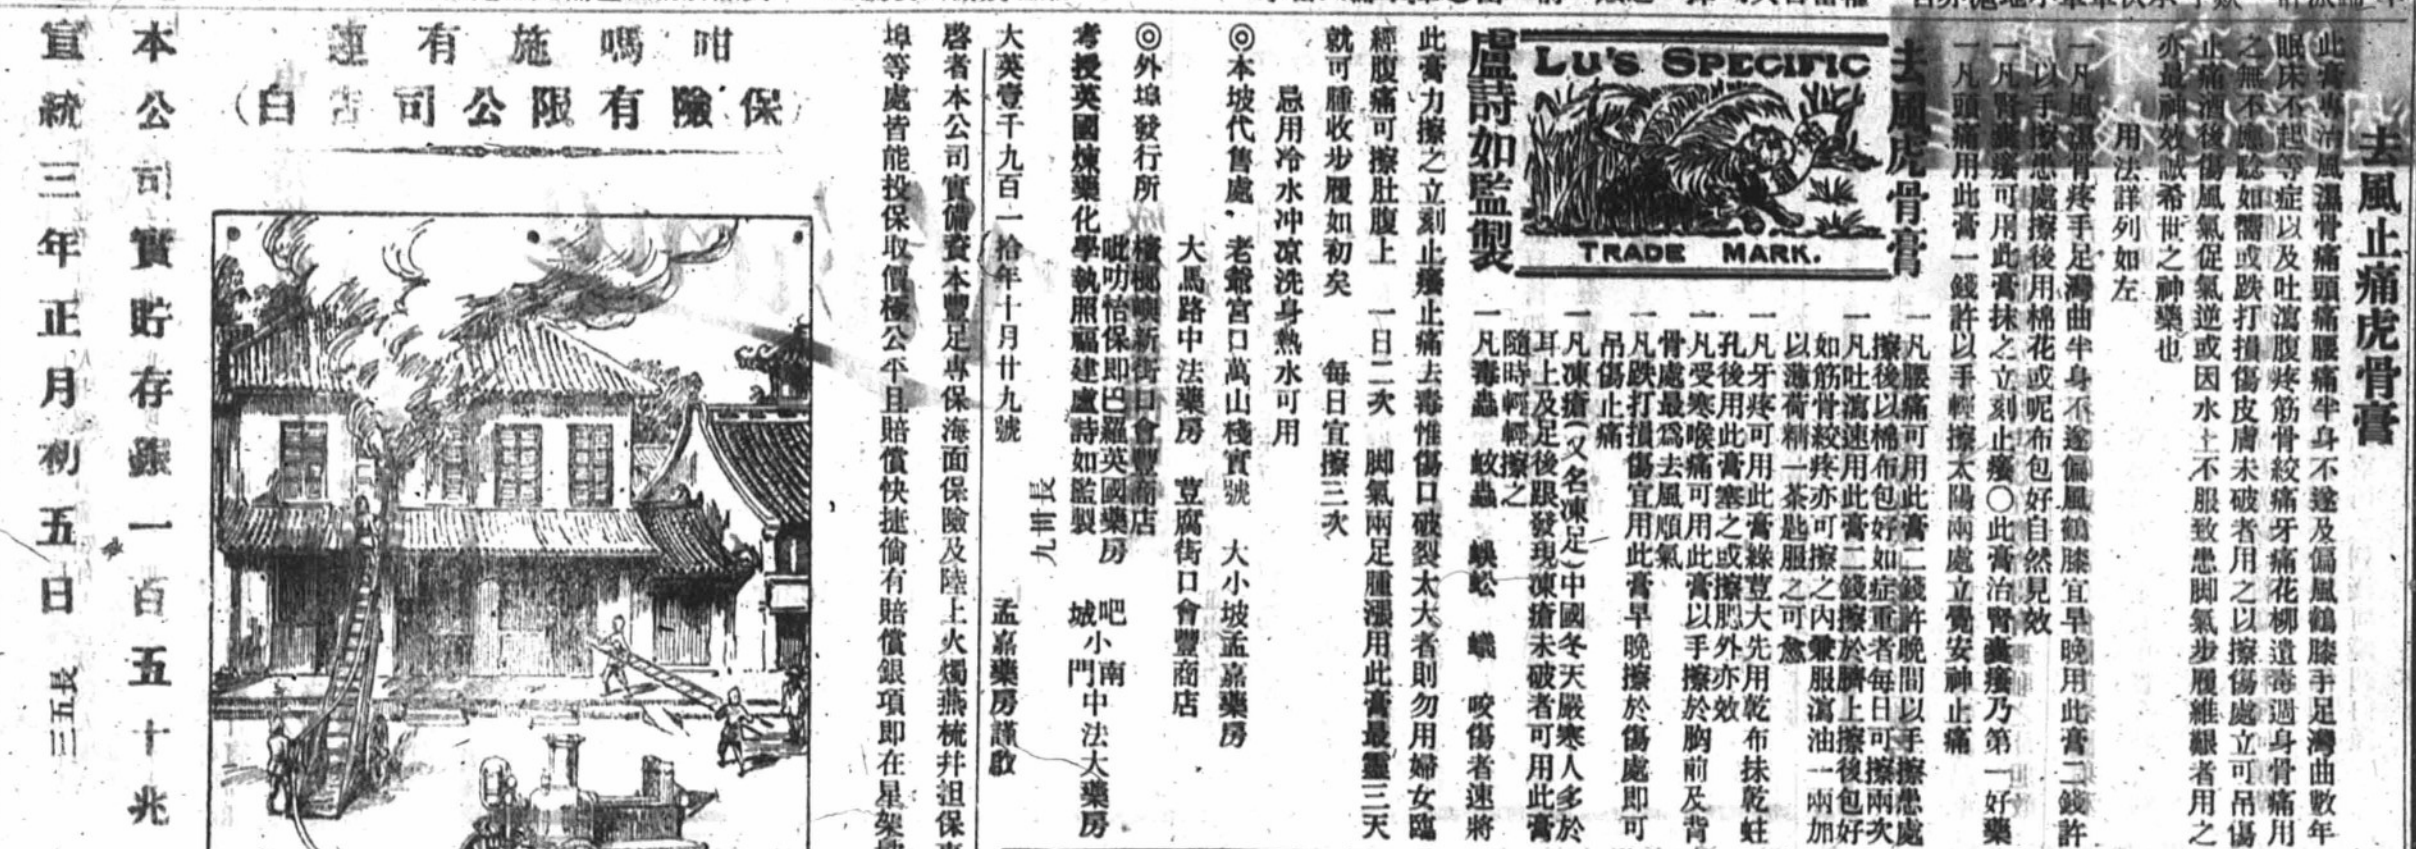 去風止痛虎骨膏
此膏專治風濕骨痛頭痛腰痛半身不遂及偏風鶴膝手足灣曲數年
眠床不起等症以及吐瀉腹疼筋骨絞痛牙痛花柳遺毒週身骨痛用
之無不應驗如癰或跌打損傷皮膚未破者用之以擦傷處立可吊傷
止痛酒後傷風氣促氣逆或因水土不服致患脚氣步履維艱者用之
亦最神效誠希世之神藥也
用法詳列如左
一凡風濕骨疼手足灣曲半身不遂偏風鶴膝宜早晚用此膏二錢許
以手擦患處擦後用棉花或呢布包好自然見效
一凡腎囊癢可用此膏抹之立刻止癢〇此膏治腎囊癢乃第一好藥
一凡頭痛用此膏一錢許以手輕擦太陽兩處立覺安神止痛
去風虎骨膏
LU'S SPECIFIC
TRADE MARK.
盧詩如監製
一凡腰痛可用此膏二錢許晚間以手擦患處
擦後以棉布包好如症重者每日可擦兩次
一凡吐瀉速用此膏二錢擦於臍上擦後包好
如筋骨絞疼亦可擦之內兼服瀉油一兩加
以薄荷精一茶匙服之可愈
一凡牙疼可用此膏綠荳大先用乾布抹乾蛀
孔後用此膏塞之或擦腮外亦效
一凡受寒喉痛可用此膏以手擦於胸前及背
骨處最爲去風順氣
一凡跌打損傷宜用此膏早晚擦於傷處即可
吊傷止痛
一凡凍瘡(又名凍足)中國冬天嚴寒人多於
耳上及足後跟發現凍瘡未破者可用此膏
隨時輕輕擦之
一凡毒蟲 蚊蟲 蜈蚣 蟻 咬傷者速將
此膏力擦之立刻止癢止痛去毒惟傷口破裂太大者則勿用婦女臨
經腹痛可擦肚腹上 一日二次 脚氣兩足腫漲用此膏最靈三天
就可腫收步履如初矣 每日宜擦三次
忌用冷水冲凉洗身熱水可用
◎本坡代售處 老爺宮口萬山棧寶號 大小坡孟嘉藥房
大馬路中法藥房 荳腐街口會豐商店
◎外埠發行所 檳榔嶼新街口會豐商店
吡叻怡保即巴羅英國藥房 吧城小南門中法大藥房
考授英國煉藥化學執照福建盧詩如監製
長卅九
大英壹千九百一拾年十月廿九號 孟嘉藥房謹啟
啓者本公司實備資本豐足專保海面保險及陸上火燭燕梳并担保
埠等處皆能投保取價極公平且賠償快捷倘有賠償銀項即在星架
咁嗎施有連
(保險有限公司告白)
本公司實貯存銀一百五十兆
宣統三年正月初五日
長五三